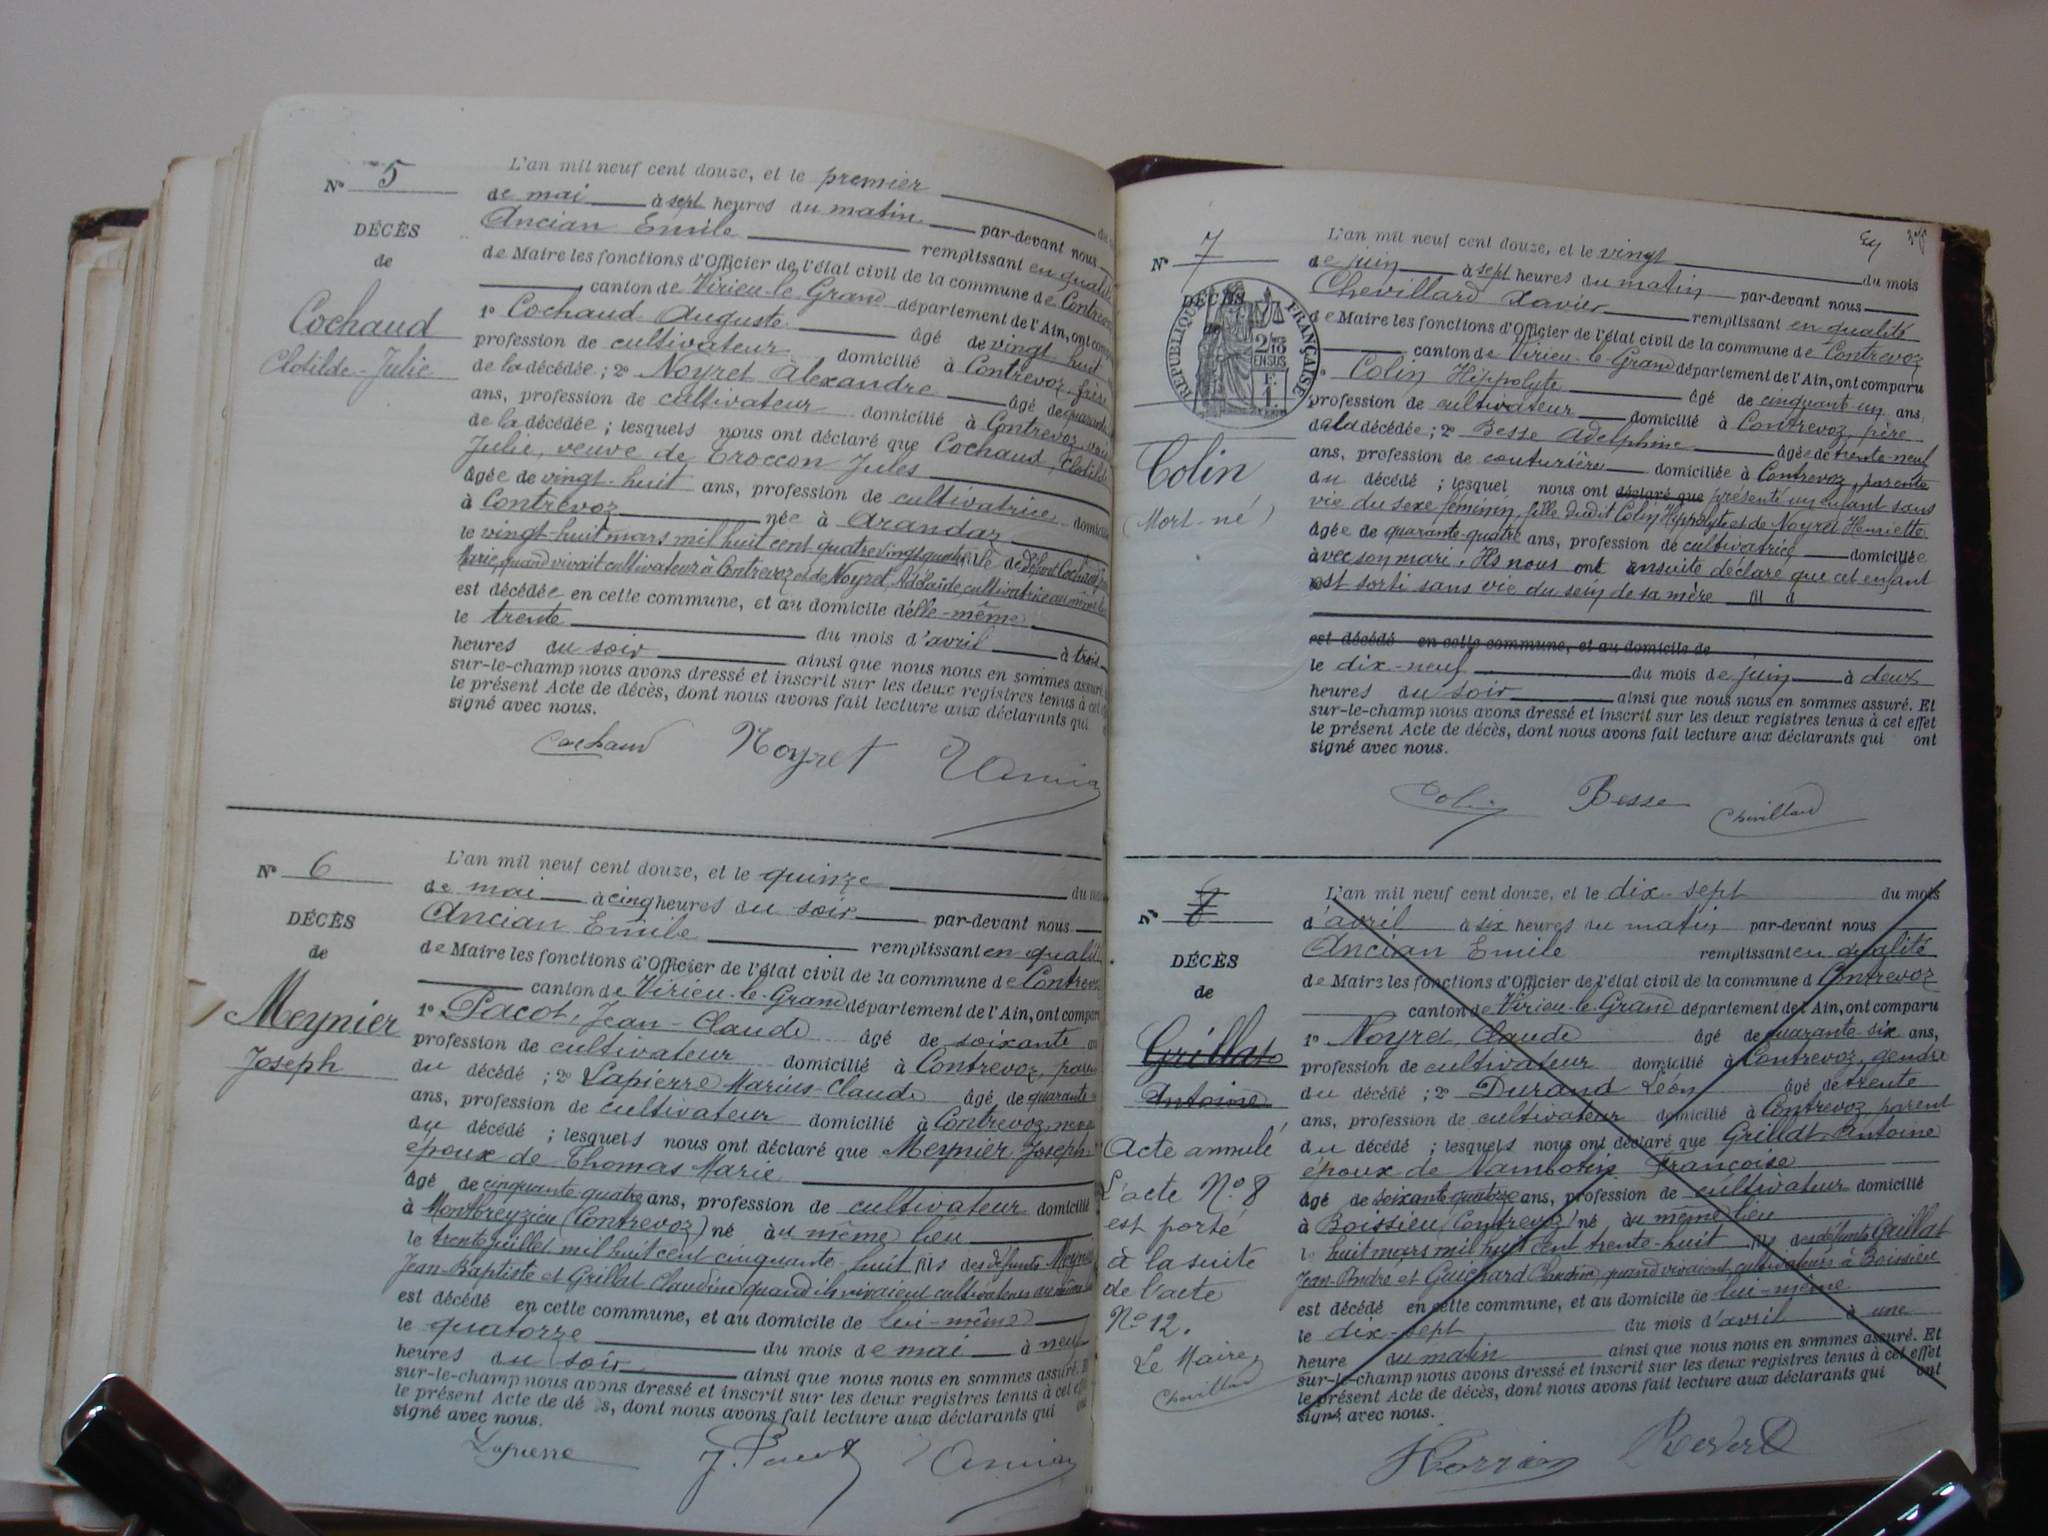 N° 5
DÉCÈS
de
Cochaud
Clotilde-Julie
L'an mil neuf cent douze, et le premier
de mai à sept heures du matin par-devant nous
Ancian Emile remplissant en qualité
de Maire les fonctions d'Officier de l'état civil de la commune de Contrevoz
canton de Virieu-le-Grand département de l'Ain, ont comp
1° Cochaud Auguste âgé de vingt huit
profession de cultivateur domicilié à Contrevoz, frère
de la décédée ; 2° Noyret Alexandre âgé de quarante
ans, profession de cultivateur domicilié à Contrevoz,
de la décédée ; lesquels nous ont déclaré que Cochaud, Clotilde
Julie, veuve de Troccon Jules
âgée de vingt-huit ans, profession de cultivatrice domicil
à Contrevoz née à Arandaz
le vingt-huit mars mil huit cent quatre vingt quatre, fille de défunt Cochaud
Marie, quand vivait cultivateur à Contrevoz et de Noyret, Adélaïde, cultivatrice au même
est décédée en cette commune, et au domicile d'elle-même
le trente du mois d'avril à trois
heures du soir ainsi que nous nous en sommes assuré.
sur-le-champ nous avons dressé et inscrit sur les deux registres tenus à cet
le présent Acte de décès, dont nous avons fait lecture aux déclarants qui
signé avec nous.
Cochaud Noyret Ancian
N° 6
DÉCÈS
de
Meynier
Joseph
L'an mil neuf cent douze, et le quinze du
de mai à cinq heures du soir par-devant nous
Ancian Emile remplissant en qualité
de Maire les fonctions d'Officier de l'état civil de la commune de Contrevoz
canton de Virieu-le-Grand département de l'Ain, ont comparu
1° Pacot, Jean-Claude âgé de soixante
profession de cultivateur domicilié à Contrevoz,
du décédé ; 2° Lapierre Marius-Claude âgé de quarante
ans, profession de cultivateur domicilié à Contrevoz, neveu
du décédé ; lesquels nous ont déclaré que Meynier, Joseph
époux de Thomas Marie
âgé de cinquante-quatre ans, profession de cultivateur domicilié
à Montbreyzieu (Contrevoz) né au même lieu
le trente juillet mil huit cent cinquante-huit fils des défunts Meynier
Jean-Baptiste et Grillat Claudine quand ils vivaient cultivateurs au même
est décédé en cette commune, et au domicile de lui-même
le quatorze du mois de mai à neuf
heures du soir ainsi que nous nous en sommes assuré.
sur-le-champ nous avons dressé et inscrit sur les deux registres tenus à cet
le présent Acte de décès, dont nous avons fait lecture aux déclarants qui
signé avec nous.
Lapierre J. Pacot Ancian
N° 7
DÉCÈS
de
RÉPUBLIQUE FRANÇAISE
Colin
(Mort-né)
L'an mil neuf cent douze, et le vingt du mois
de juin à sept heures du matin par-devant nous
Chevillard Xavier remplissant en qualité
de Maire les fonctions d'Officier de l'état civil de la commune de Contrevoz
canton de Virieu-le-Grand département de l'Ain, ont comparu
Colin Hippolyte âgé de cinquante un ans.
profession de cultivateur domicilié à Contrevoz, père
de la décédée ; 2° Besse Adelphine âgée de trente-neuf
ans, profession de couturière domiciliée à Contrevoz, parente
du décédé ; lesquel nous ont déclaré que présenté un enfant sans
vie du sexe féminin, fille dudit Colin Hippolyte et de Noyret Henriette
âgée de quarante-quatre ans, profession de cultivatrice domiciliée
avec son mari. Ils nous ont ensuite déclaré que cet enfant
est sorti sans vie du sein de sa mère fil d
est décédé en cette commune, et au domicile de
le dix-neuf du mois de juin à deux
heures du soir ainsi que nous nous en sommes assuré. Et
sur-le-champ nous avons dressé et inscrit sur les deux registres tenus à cet effet
le présent Acte de décès, dont nous avons fait lecture aux déclarants qui ont
signé avec nous.
Colin Besse Chevillard
N° 8
DÉCÈS
de
Grillat
Antoine
Acte annulé,
L'acte N° 8
est porté
à la suite
de l'acte
N° 12.
Le Maire,
Chevillard
L'an mil neuf cent douze, et le dix-sept du mois
d'avril à six heures du matin par-devant nous
Ancian Emile remplissant en qualité
de Maire les fonctions d'Officier de l'état civil de la commune de Contrevoz
canton de Virieu-le-Grand département de l'Ain, ont comparu
1° Noyret, Claude âgé de quarante-six ans,
profession de cultivateur domicilié à Contrevoz, gendre
du décédé ; 2° Durand Léon âgé de trente
ans, profession de cultivateur domicilié à Contrevoz, parent
du décédé ; lesquels nous ont déclaré que Grillat Antoine
époux de Françoise
âgé de soixante quatorze ans, profession de cultivateur domicilié
à Boissieu (Contrevoz) né au même lieu
le huit mars mil huit cent trente-huit fils des défunts Grillat
Jean-André et Guichard Claudine quand vivaient cultivateurs à Boissieu
est décédé en cette commune, et au domicile de lui-même
le dix-sept du mois d'avril à une
heure du matin ainsi que nous nous en sommes assuré. Et
sur-le-champ nous avons dressé et inscrit sur les deux registres tenus à cet effet
le présent Acte de décès, dont nous avons fait lecture aux déclarants qui ont
signé avec nous.